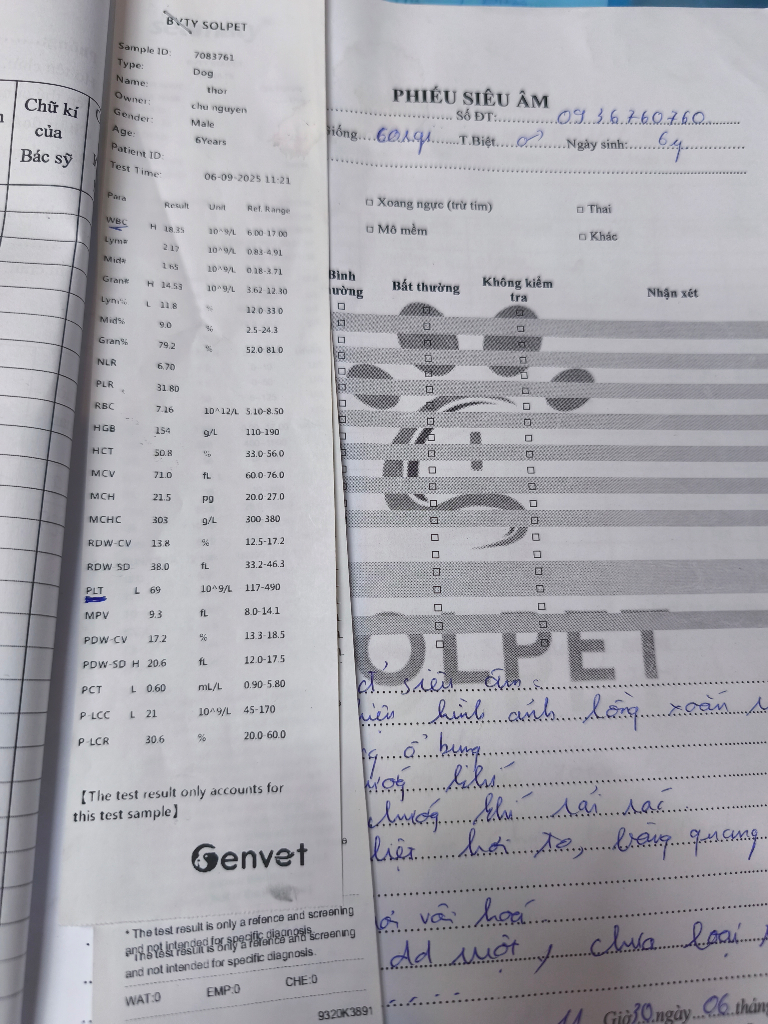 BVTY SOLPET
Sample ID: 7083761
Type: Dog
Name: thor
Owner: chu nguyen
Gender: Male
Age: 6Years
Patient ID:
Test Time: 06-09-2025 11:21
Para Result Unit Ref. Range
WBC H 18.35 10^9/L 6.00-17.00
Lym# 2.17 10^9/L 0.83-4.91
Mid# 1.65 10^9/L 0.18-3.71
Gran# H 14.53 10^9/L 3.62-12.30
Lym% L 11.8 % 12.0-33.0
Mid% 9.0 % 2.5-24.3
Gran% 79.2 % 52.0-81.0
NLR 6.70
PLR 31.80
RBC 7.16 10^12/L 5.10-8.50
HGB 154 g/L 110-190
HCT 50.8 % 33.0-56.0
MCV 71.0 fL 60.0-76.0
MCH 21.5 pg 20.0-27.0
MCHC 303 g/L 300-380
RDW-CV 13.8 % 12.5-17.2
RDW-SD 38.0 fL 33.2-46.3
PLT L 69 10^9/L 117-490
MPV 9.3 fL 8.0-14.1
PDW-CV 17.2 % 13.3-18.5
PDW-SD H 20.6 fL 12.0-17.5
PCT L 0.60 mL/L 0.90-5.80
P-LCC L 21 10^9/L 45-170
P-LCR 30.6 % 20.0-60.0
【The test result only accounts for
this test sample】
Genvet
* The test result is only a refence and screening
and not intended for specific diagnosis.
* The test result is only a refence and screening
and not intended for specific diagnosis.
WAT:0 EMP:0 CHE:0
9320K3891
Chữ kí
của
Bác sỹ
PHIẾU SIÊU ÂM
Số ĐT: 0936760760
Giống T.Biệt ♂ Ngày sinh: 6y
Xoang ngực (trừ tim) Thai
Mô mềm Khác
Bình thường Bất thường Không kiểm tra Nhận xét
SOLPET
siêu âm:
hình ảnh lồng xoắn
ổ bụng
khí
chướng khí rải rác
hơi to, bàng quang
vôi hoá
ruột, chưa loại
11 Giờ 30 ngày 06 tháng